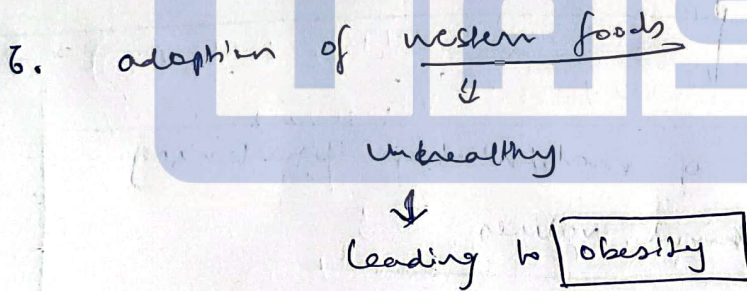 6. adoption of western foods
⇓
unhealthy
↓
leading to obesity